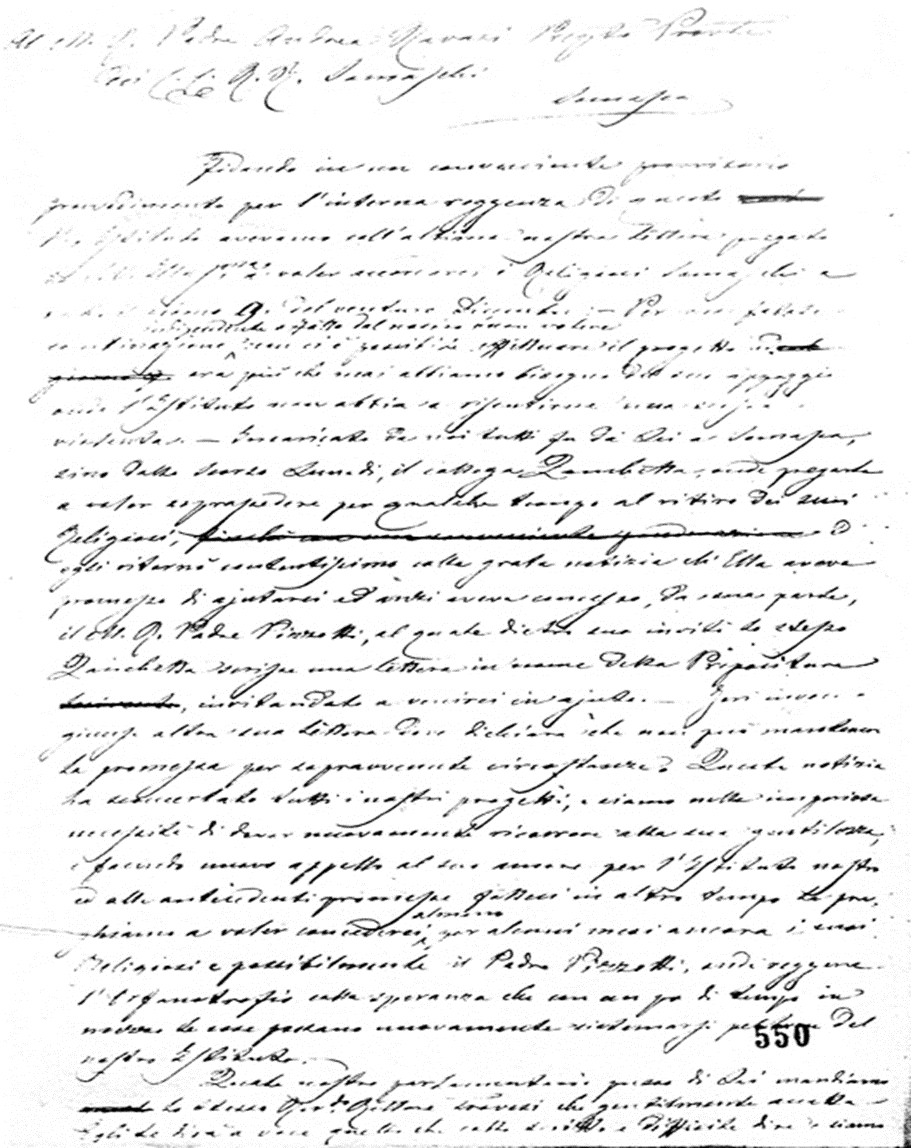 Al M. R. Padre Andrea Ravasi Prep.to Prov.le
dei C.C. R.R. Somaschi
Somasca
Fidando in un conveniente provvisorio
provvedimento per l'interna reggenza di questo
Istituto avevamo coll'ultima nostra Lettera pregato
a voler accordarci i Religiosi Somaschi a
il giorno 9. del venturo Dicembre. — Per una fatale
indipendente affatto dal nostro buon volere
combinazione non ci è possibile effettuare il progetto
ora più che mai abbiamo bisogno del suo appoggio
onde l'Istituto non abbia a risentirne una scossa
violenta. — Incaricato da noi tutti fu da Lei a Somasca,
sino dallo scorso Lunedì, il collega Zanchetta, onde pregarla
a voler soprasedere per qualche tempo al ritiro dei suoi
Religiosi, ed
egli ritornò contentissimo colla grata notizia ch'Ella aveva
promesso di ajutarci ed anzi aveva concesso, da sua parte,
il M. R. Padre Pizzotti, al quale dietro suo invito lo stesso
Zanchetta scrisse una lettera in nome della Prepositura
, invitandolo a venirci in ajuto. — Jeri invece
giunse altra sua Lettera dove dichiara che non può mantenere
la promessa per sopravvenute circostanze. Questa notizia
ha sconcertato tutti i nostri progetti, e siamo nella imperiosa
necessità di dover nuovamente ricorrere alla sua gentilezza,
e facendo nuovo appello al suo amore per l'Istituto nostro
ed alle antecedenti promesse fatteci in altro tempo La pre-
almeno
ghiamo a voler concederci per alcuni mesi ancora i suoi
Religiosi e possibilmente il Padre Pizzotti, onde reggere
l'Orfanotrofio colla speranza che con un po di tempo in
mezzo le cose possano nuovamente sistemarsi pel bene del
550
nostro Istituto. —
Quale nostro parlamentario presso di Lei mandiamo
lo stesso che gentilmente accetta
dirà a voce quello che collo scritto è difficile dire e siamo